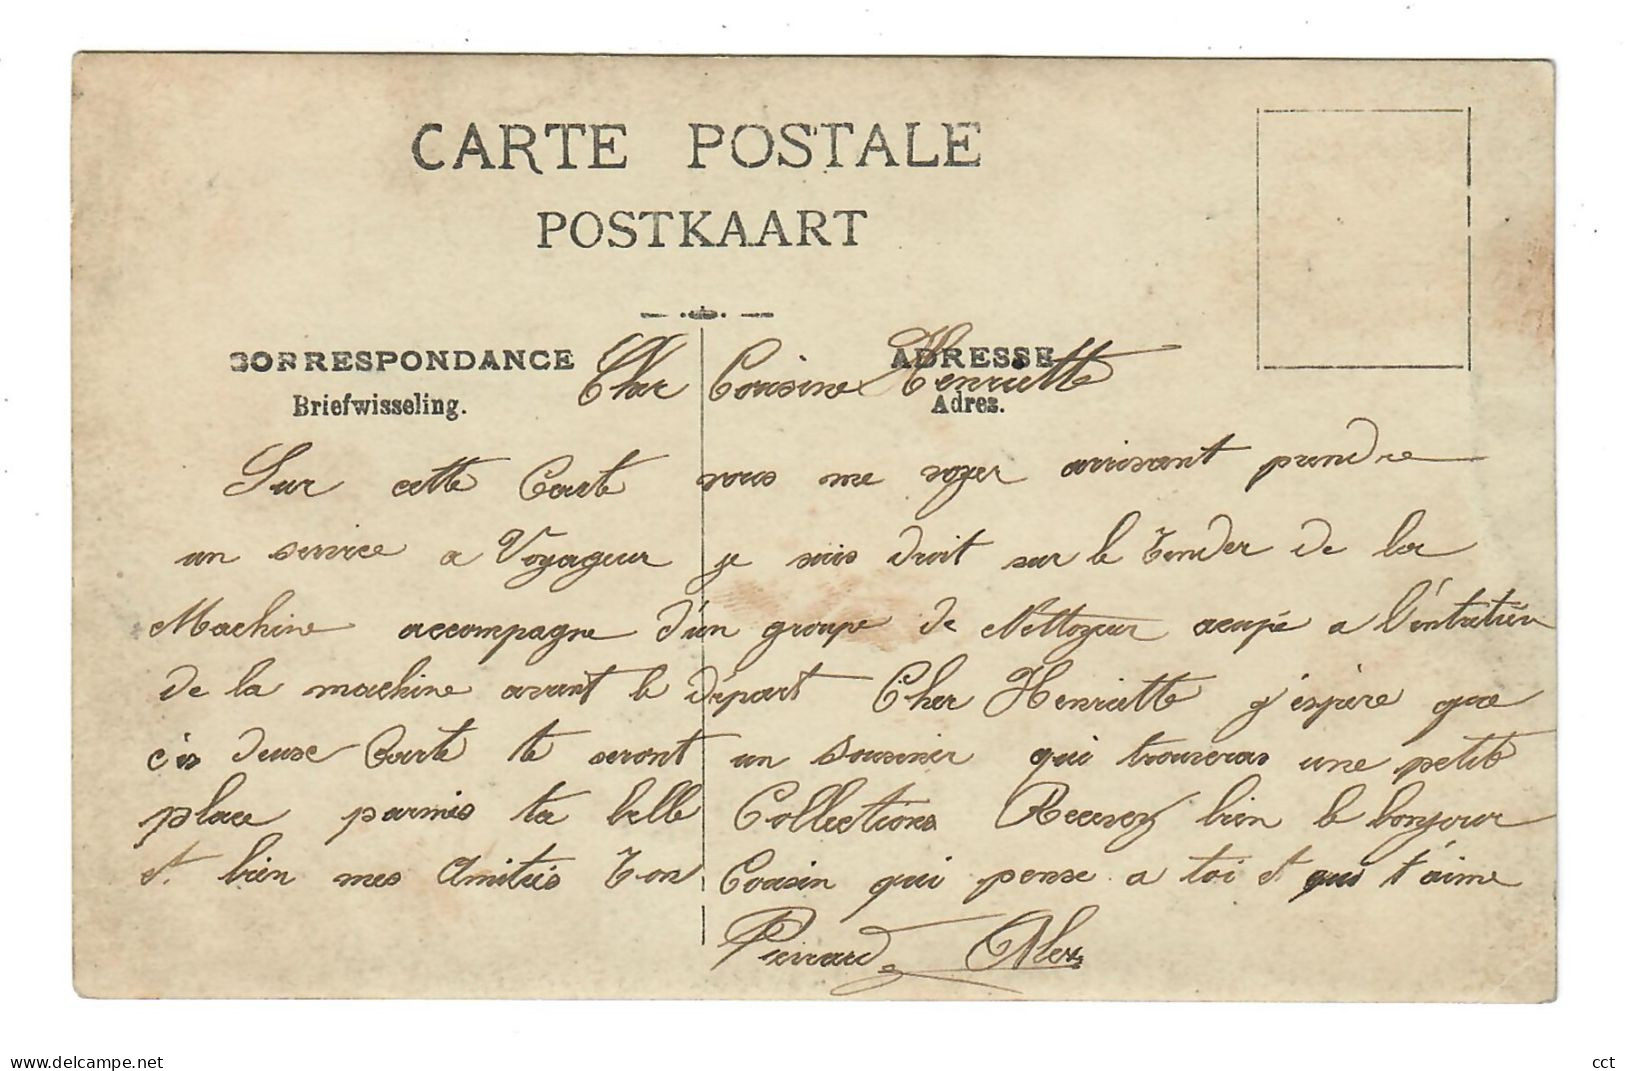 CARTE POSTALE
POSTKAART
CORRESPONDANCE
Briefwisseling.
ADRESSE
Adres.
Cher Cousine Henriette
Sur cette Carte vous me voyer arrivant prendre
un service a Voyageur je suis droit sur le Tender de la
Machine accompagne d'un groupe de Nettoyeur acupé a l'entretien
de la machine avant le départ Cher Henriette j'éspère que
ces deuse Carte te seront un souvenir qui trouveras une petite
place parmis ta belle Collections Recevez bien le bonjour
et bien mes Amitiés Ton Cousin qui pense a toi et qui t'aime
Pierrard Alex
www.delcampe.net
cct